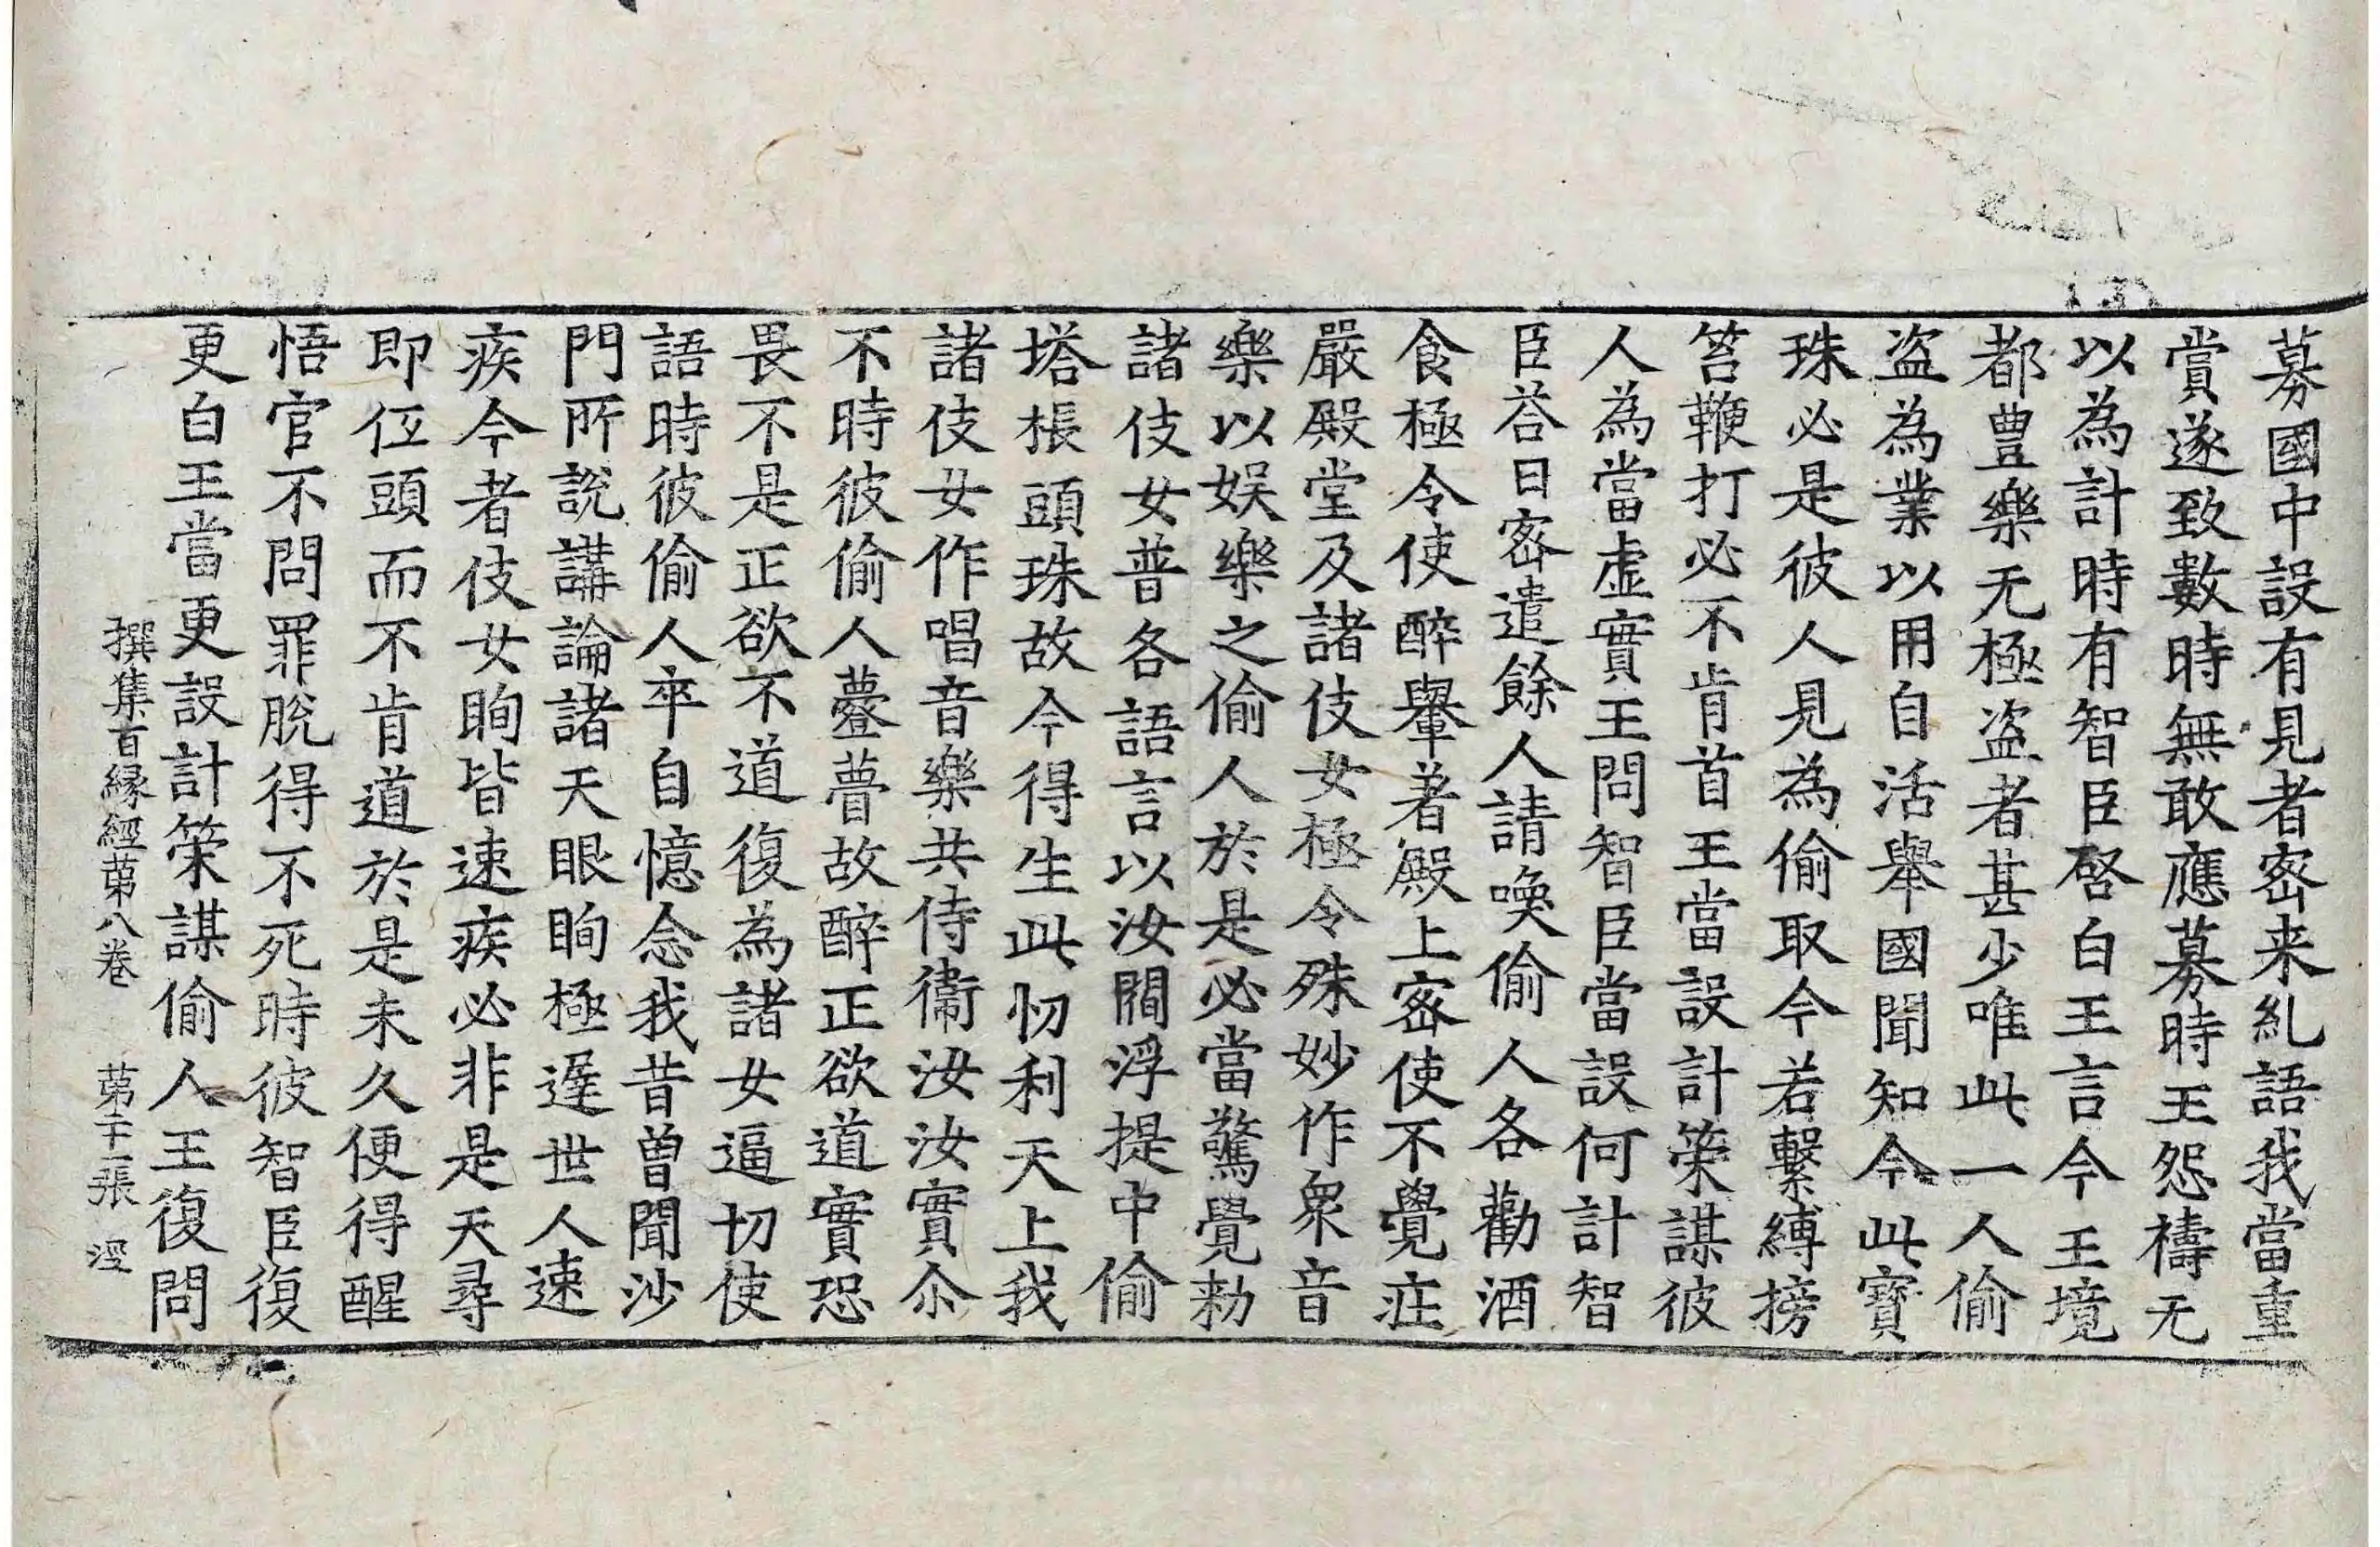 募國中設有見者密来糺語我當重
賞遂致數時無敢應募時王怨禱无
以為計時有智臣啓白王言今王境
都豊樂无極盗者甚少唯此一人偷
盗為業以用自活舉國聞知今此寶
珠必是彼人見為偷取今若繫縛搒
笞鞭打必不肯首王當設計䇿謀彼
人為當虛實王問智臣當設何計智
臣荅曰密遣餘人請喚偷人各勸酒
食極令使醉轝著殿上密使不覺莊
嚴殿堂及諸伎女極令殊妙作衆音
樂以娱樂之偷人於是必當驚覺勑
諸伎女普各語言以汝閻浮提中偷
塔棖頭珠故今得生此忉利天上我
諸伎女作唱音樂共侍衛汝汝實尒
不時彼偷人薹瞢故醉正欲道實恐
畏不是正欲不道復為諸女逼切使
語時彼偷人卒自憶念我昔曾聞沙
門所説講論諸天眼眴極遲世人速
疾今者伎女眴皆速疾必非是天尋
即伭頭而不肯道於是未久便得醒
悟官不問罪脫得不死時彼智臣復
更白王當更設計䇿謀偷人王復問
撰集百縁經苐八卷 苐二十一張 淫